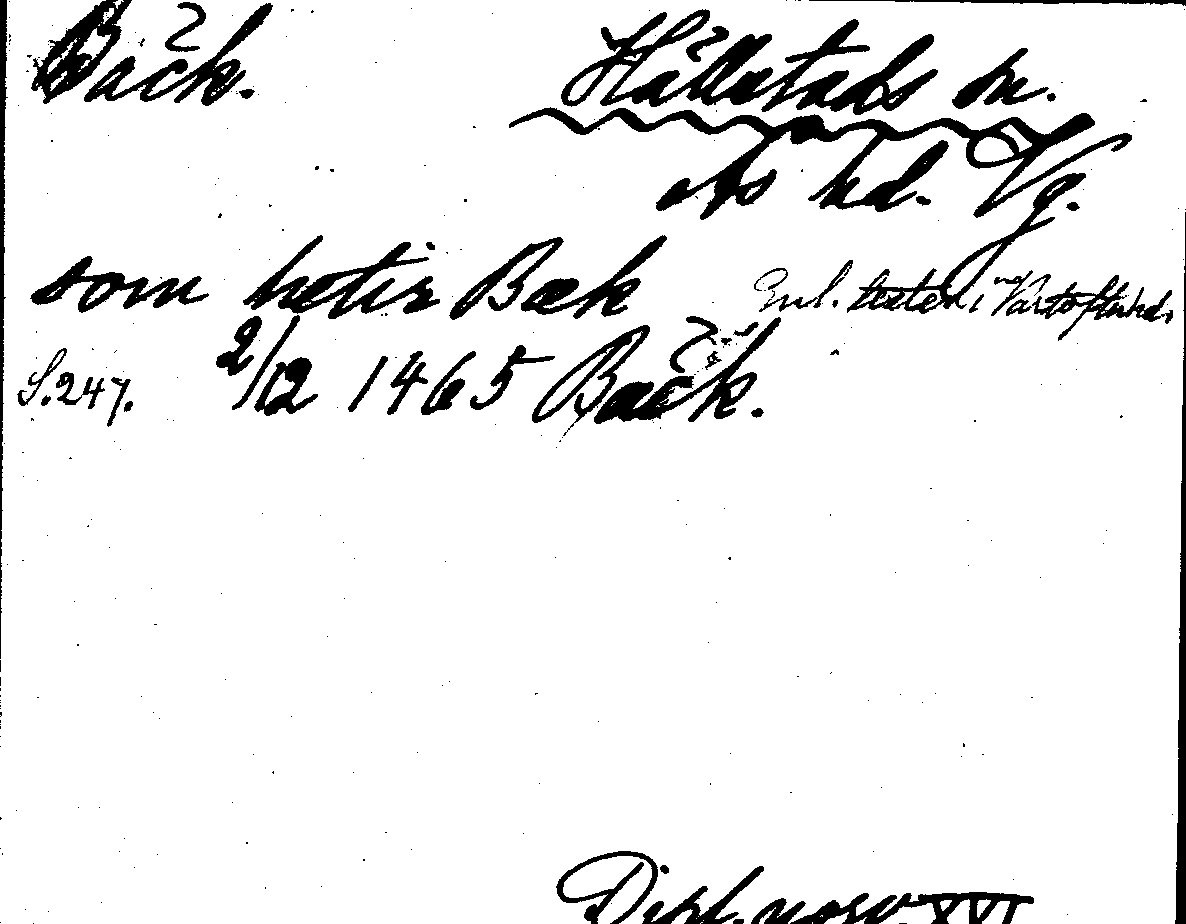 Bäck.
Hällstads sn.
Ås hd. Vg.
som hetir Bæk Enl. texten i Vartofta hd.
S. 247. 2/12 1465 Bäck.
Dipl. norv. XVI